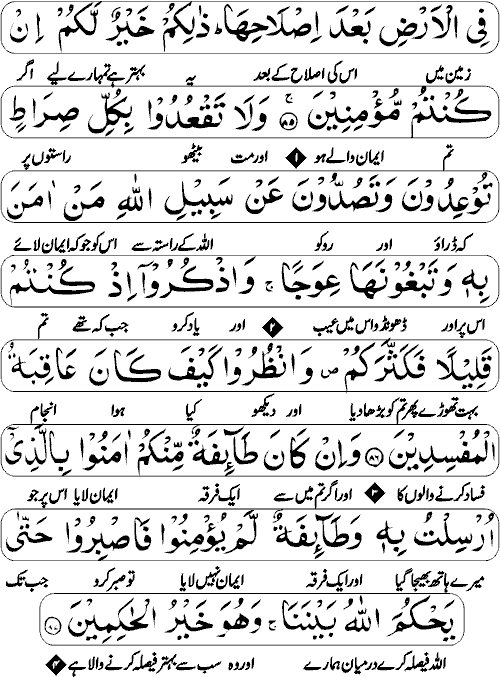 فِي الْاَرْضِ بَعْدَ اِصْلَاحِهَا ؕ ذٰلِكُمْ خَيْرٌ لَّكُمْ اِنْ
زمین میں اس کی اصلاح کے بعد یہ بہتر ہے تمہارے لیے اگر
كُنْتُمْ مُّؤْمِنِيْنَ ۚ ﴿۸۵﴾ وَلَا تَقْعُدُوْا بِكُلِّ صِرَاطٍ
تم ایمان والے ہو ۱ اور مت بیٹھو راستوں پر
تُوْعِدُوْنَ وَتَصُدُّوْنَ عَنْ سَبِيْلِ اللّٰهِ مَنْ اٰمَنَ
کہ ڈراؤ اور روکو اللہ کے راستہ سے اس کو جو کہ ایمان لائے
بِهٖ وَتَبْغُوْنَهَا عِوَجًا ۚ وَاذْكُرُوْۤا اِذْ كُنْتُمْ
اس پر اور ڈھونڈو اس میں عیب ۲ اور یاد کرو جب کہ تھے تم
قَلِيْلًا فَكَثَّرَكُمْ ۪ وَانْظُرُوْا كَيْفَ كَانَ عَاقِبَةُ
بہت تھوڑے پھر تم کو بڑھا دیا اور دیکھو کیا ہوا انجام
الْمُفْسِدِيْنَ ﴿۸۶﴾ وَاِنْ كَانَ طَآىِٕفَةٌ مِّنْكُمْ اٰمَنُوْا بِالَّذِيْۤ
فساد کرنے والوں کا ۳ اور اگر تم میں سے ایک فرقہ ایمان لایا اس پر جو
اُرْسِلْتُ بِهٖ وَطَآىِٕفَةٌ لَّمْ يُؤْمِنُوْا فَاصْبِرُوْا حَتّٰى
میرے ہاتھ بھیجا گیا اور ایک فرقہ ایمان نہیں لایا تو صبر کرو جب تک
يَحْكُمَ اللّٰهُ بَيْنَنَا ۚ وَهُوَ خَيْرُ الْحٰكِمِيْنَ ﴿۸۷﴾
اللہ فیصلہ کرے درمیان ہمارے اور وہ سب سے بہتر فیصلہ کرنے والا ہے ۴